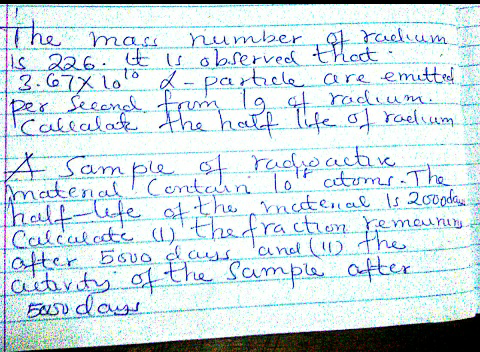 The mass number of radium
is 226. It is observed that
3.67X10¹⁰ α-particle are emitted
per second from 1g of radium.
Calculate the half life of radium
A Sample of radioactive
material Contain 10¹⁸ atoms. The
half-life of the material is 2000days
Calculate (i) the fraction remaining
after 5000 days and (ii) the
activity of the Sample after
5000 days